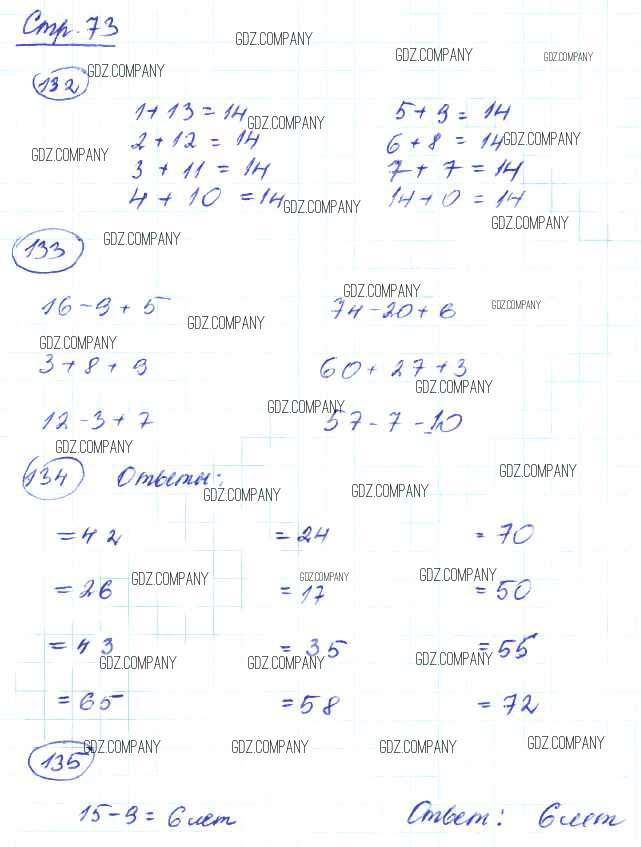 Стр. 73
GDZ.COMPANY
GDZ.COMPANY
GDZ.COMPANY
132
GDZ.COMPANY
1 + 13 = 14
5 + 9 = 14
GDZ.COMPANY
2 + 12 = 14
6 + 8 = 14
GDZ.COMPANY
GDZ.COMPANY
3 + 11 = 14
7 + 7 = 14
4 + 10 = 14
14 + 0 = 14
GDZ.COMPANY
GDZ.COMPANY
133
GDZ.COMPANY
GDZ.COMPANY
16 - 9 + 5
74 - 20 + 6
GDZ.COMPANY
GDZ.COMPANY
GDZ.COMPANY
3 + 8 + 9
60 + 27 + 3
GDZ.COMPANY
GDZ.COMPANY
12 - 3 + 7
57 - 7 - 10
GDZ.COMPANY
134 Ответы:
GDZ.COMPANY
GDZ.COMPANY
GDZ.COMPANY
= 42
= 24
= 70
GDZ.COMPANY
GDZ.COMPANY
GDZ.COMPANY
= 26
= 17
= 50
= 43
= 35
= 55
GDZ.COMPANY
GDZ.COMPANY
GDZ.COMPANY
= 65
= 58
= 72
135
GDZ.COMPANY
GDZ.COMPANY
GDZ.COMPANY
GDZ.COMPANY
15 - 9 = 6 лет
Ответ: 6 лет